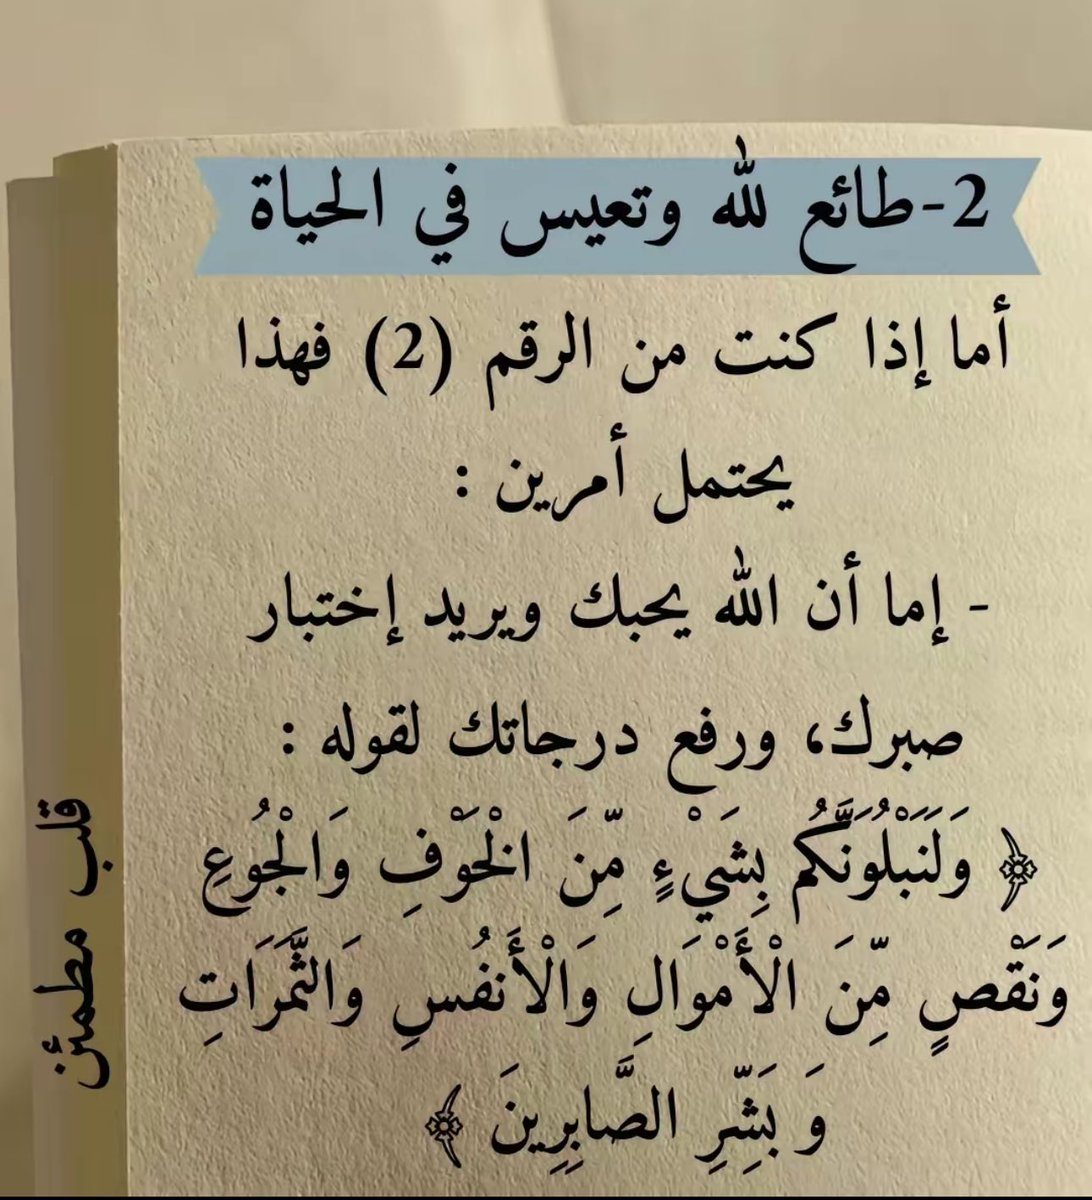 2-طائع لله وتعيس في الحياة
أما إذا كنت من الرقم (2) فهذا
يحتمل أمرين :
- إما أن الله يحبك ويريد إختبار
صبرك، ورفع درجاتك لقوله :
﴿ وَلَنَبْلُوَنَّكُم بِشَيْءٍ مِّنَ الْخَوْفِ وَالْجُوعِ
وَنَقْصٍ مِّنَ الْأَمْوَالِ وَالْأَنفُسِ وَالثَّمَرَاتِ
وَ بَشِّرِ الصَّابِرِينَ ﴾
قلب مطمئن